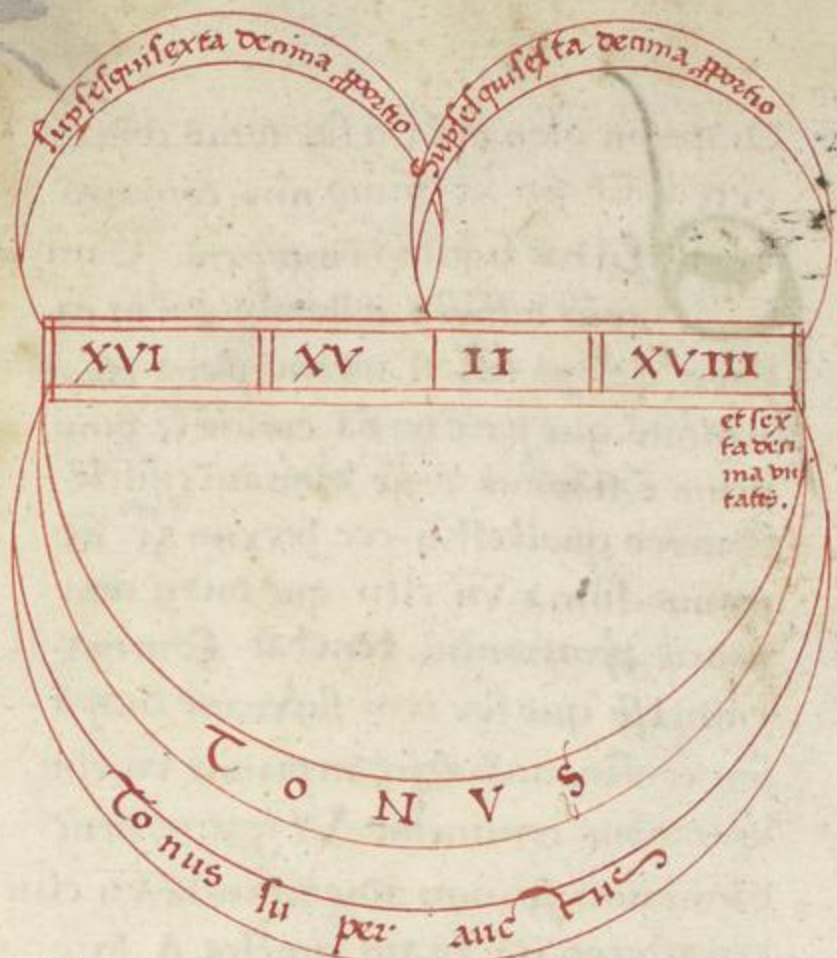 supsesquisexta decima ꝓportio
Supsesquisexta decima ꝓportio
XVI XV II XVIII
et sex
ta deci
ma vni
tatis.
TONVS
Tonus su per auctus